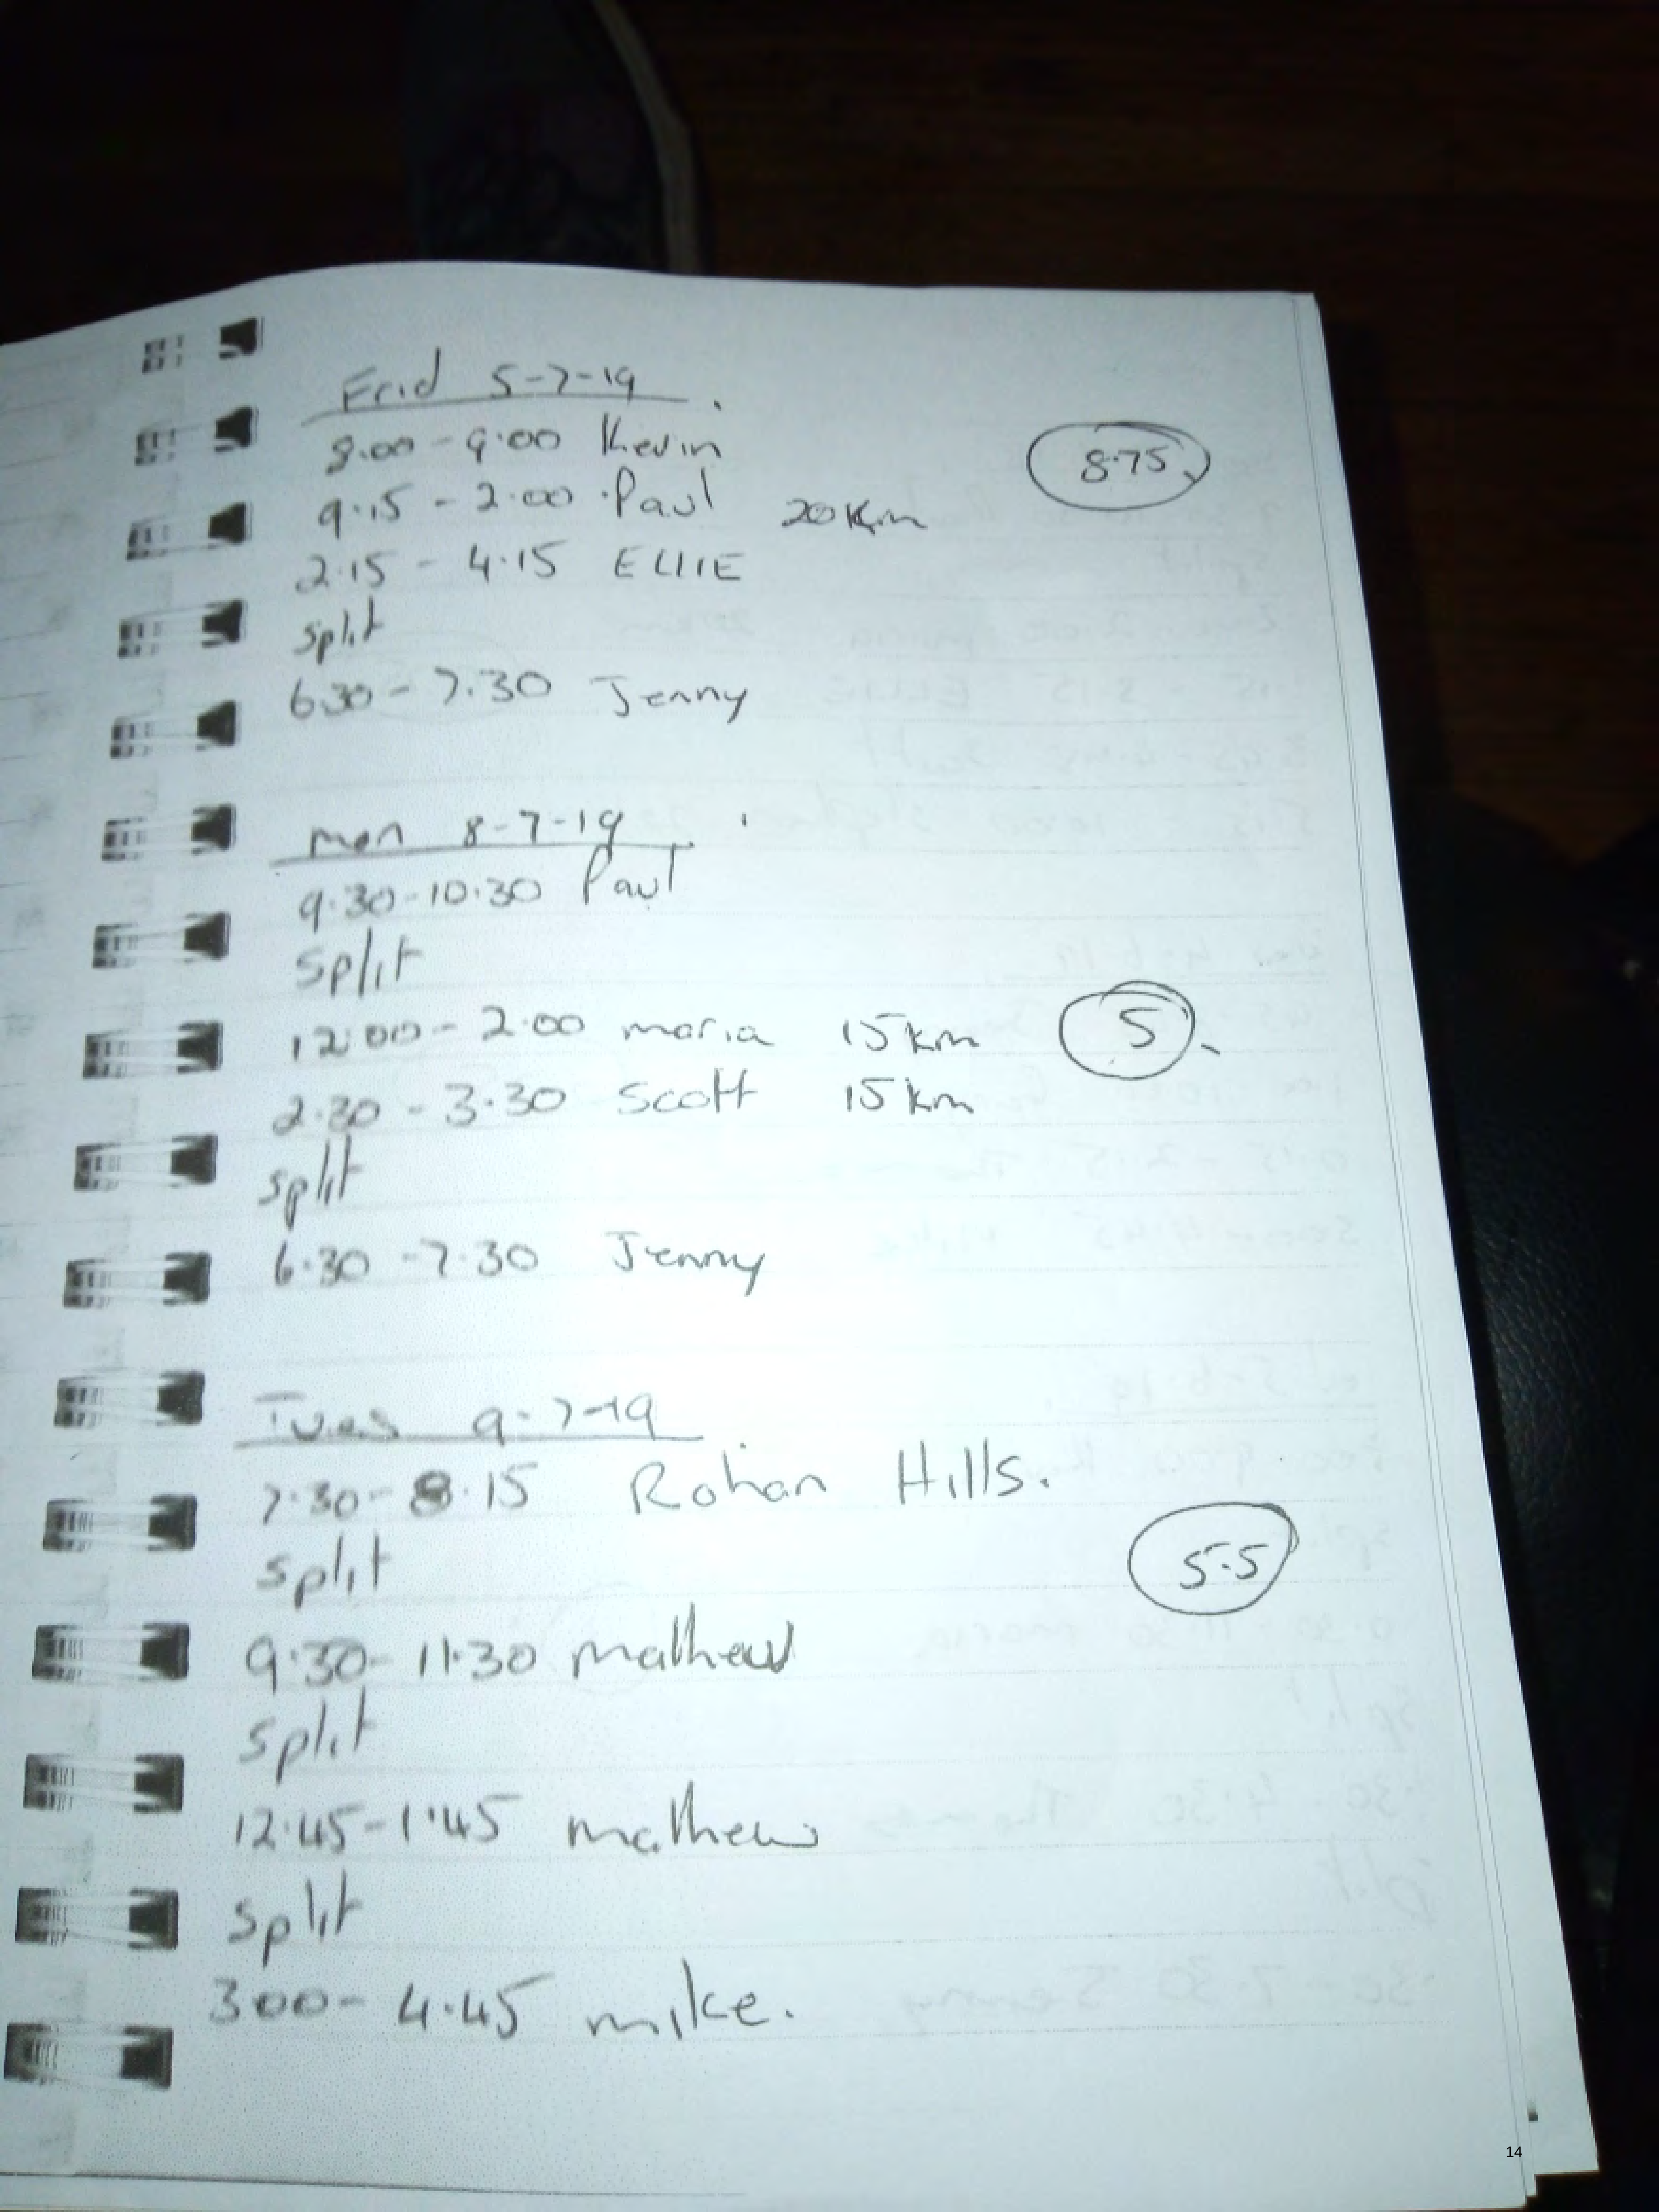 Frid 5-7-19
8.00 - 9.00 Kevin
8.75
9.15 - 2.00 Paul 20Km
2.15 - 4.15 ELLIE
split
6.30 - 7.30 Jenny
mon 8-7-19
9.30-10.30 Paul
split
12.00 - 2.00 maria 15km
5
2.30 - 3.30 Scott 15km
split
6.30 - 7.30 Jenny
Tues 9-7-19
7.30 - 8.15 Rohan Hills.
split
5.5
9.30 - 11.30 mathew
split
12.45-1.45 mathew
split
300 - 4.45 mike.
14